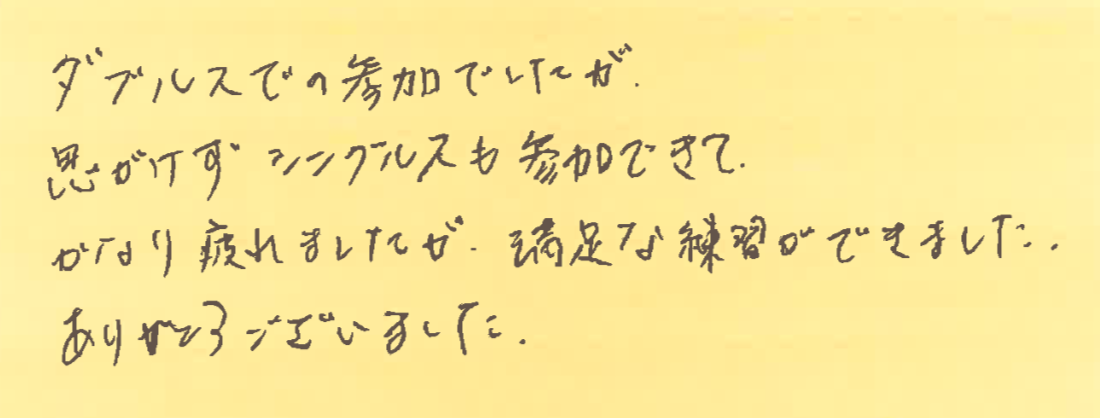 ダブルスでの参加でしたが、
思がけずシングルスも参加できて、
かなり疲れましたが、満足な練習ができました。
ありがとうございました。